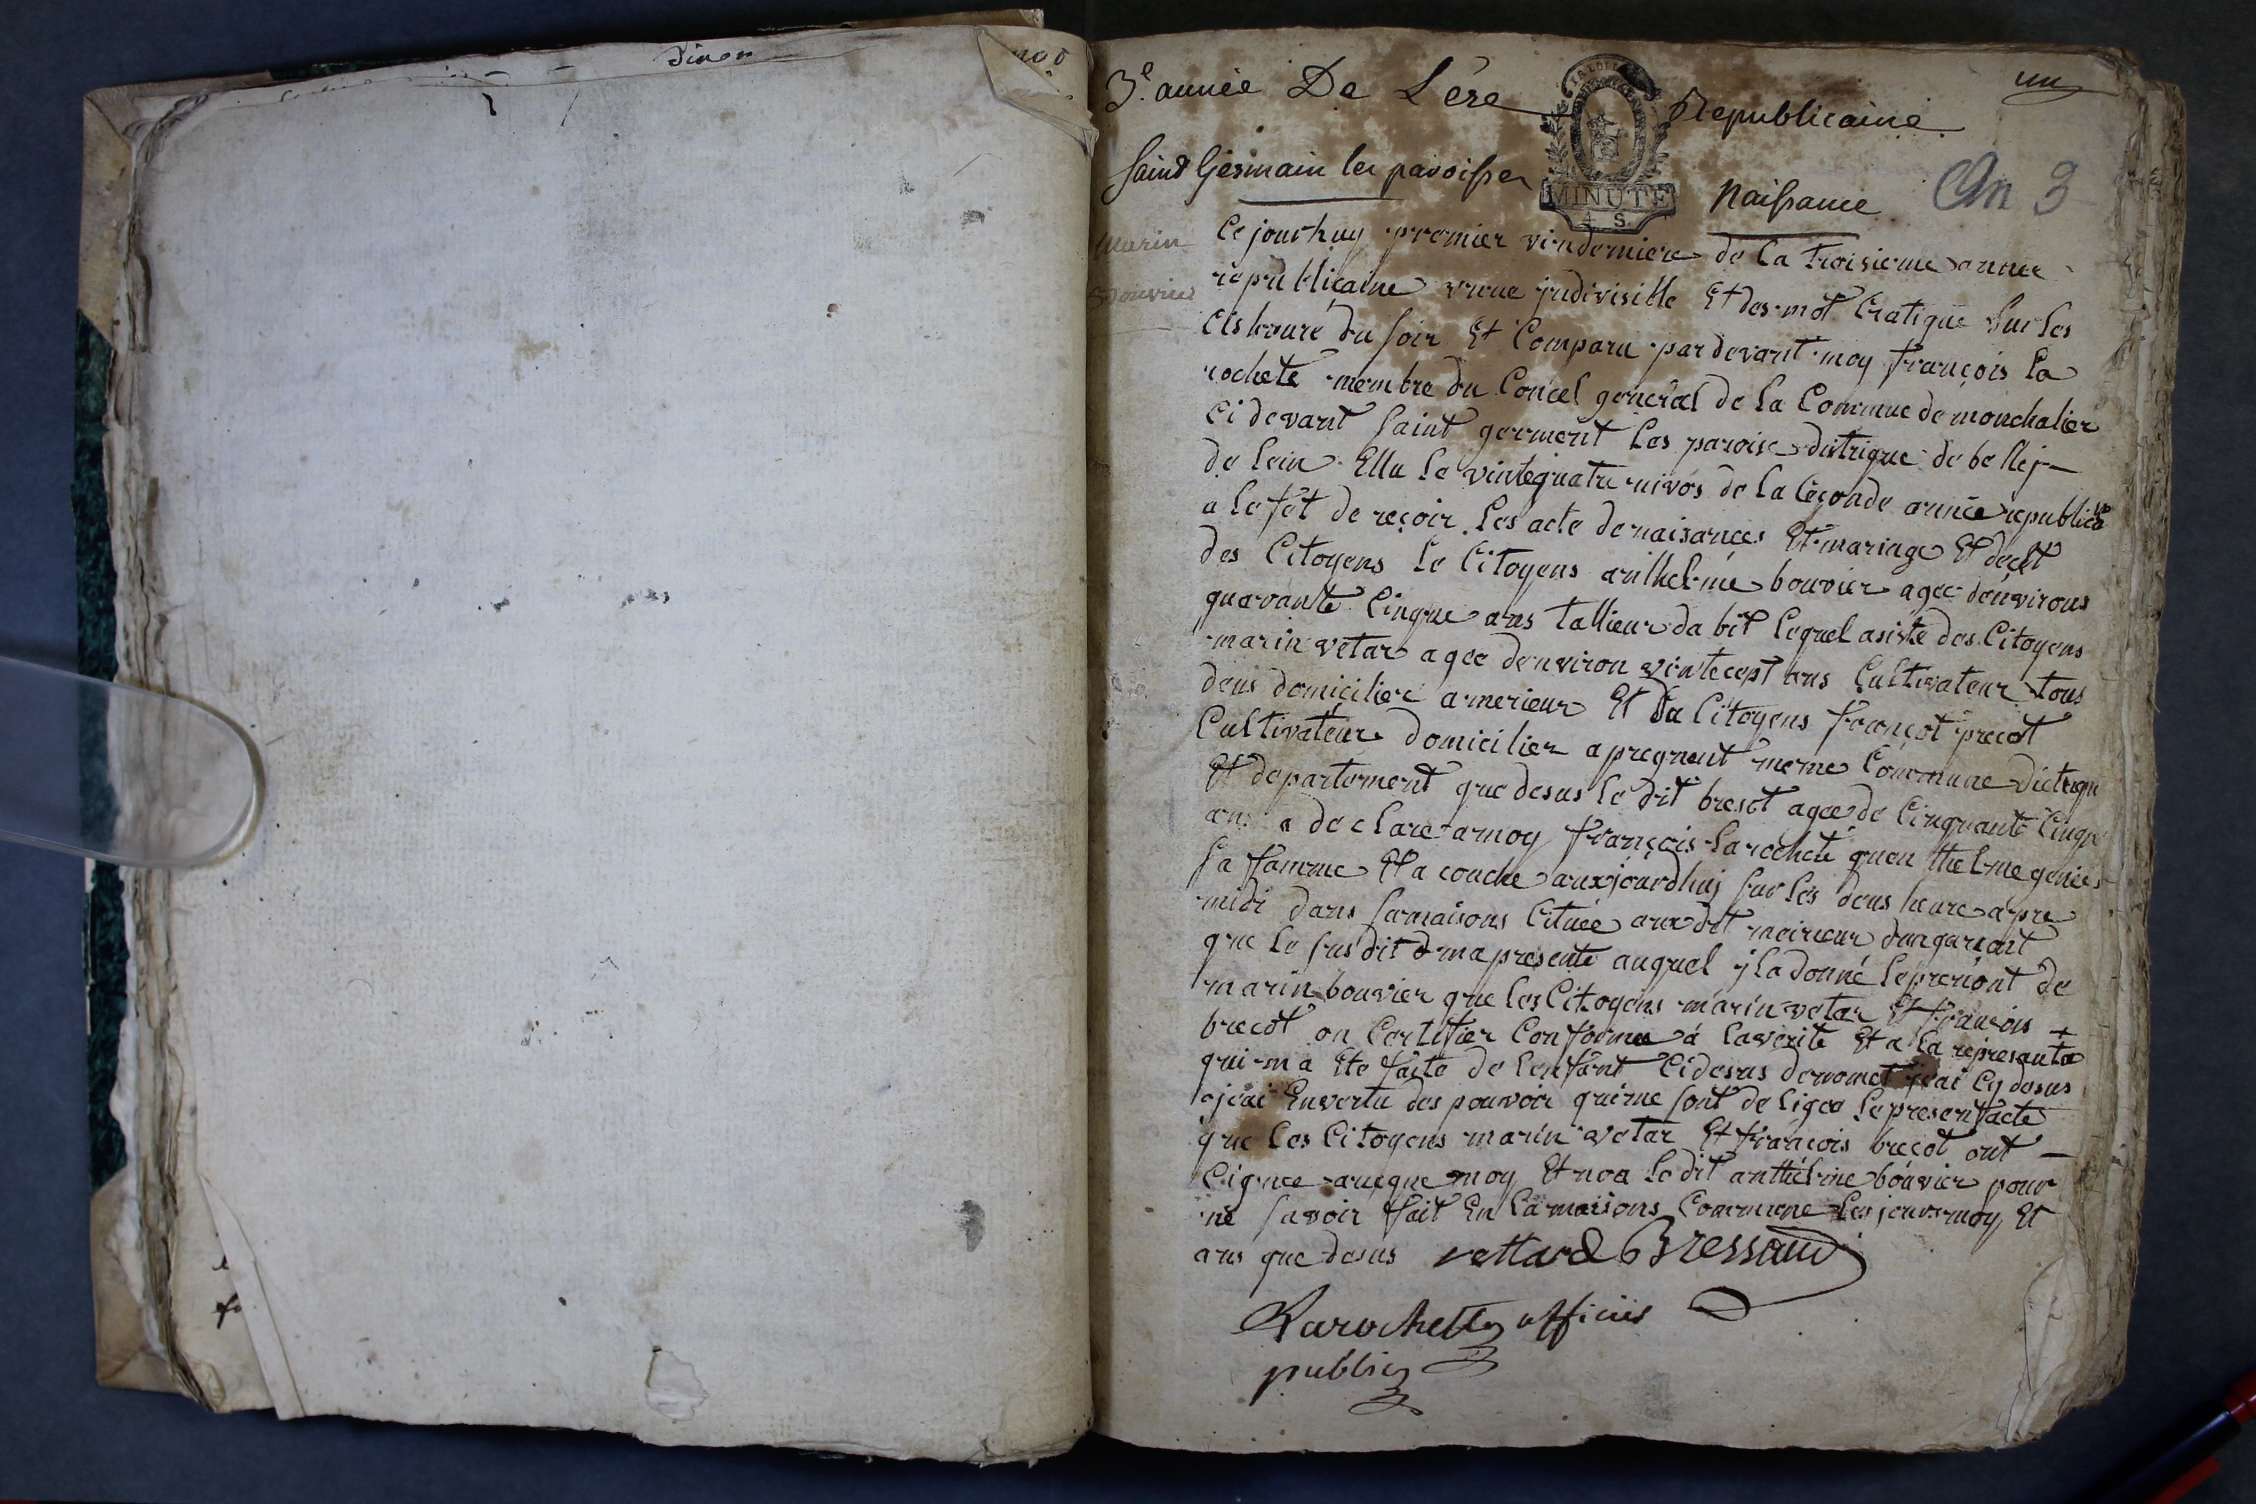 Dinon
3e année De L'ère Republicaine
un
Saint Germain les paroisses
MINUTE
4 S.
Naissance
An 3
Marin
Bouvier
Ce jourhuy premier vindemiere de la troisieme annee
republicaine vune jndivisible Et des mot Cratique sur les
cis houre du soir Et Comparu par devant moy françois la
rochete membre du Concel general de la Commune de monchalier
Ci devant saint germent les paroise distrique de belley
de lein Ellu le vintequatre nivos de la ceconde année republica
a lefét de reçoir les acte de naisances Et mariage Et decet
des Citoyens le Citoyens anthelme bouvier agee d'environs
quarante Cinque ans tallieur da bit lequel asiste des Citoyens
marin vetar agee denviron vintecept ans Cultivateur tous
deus domicilier a merieur Et du Citoyens françot precot
Cultivateur domicilier a pregnent meme Commune dictrique
Et departement que desus le dit bresot agee de Cinquante Cinque
ans a declare a moy françois larochete quen thelme genies
sa famme Et a couche aux jourdhuj sur les deus heure apre
midi dans samaisons Cituée aux dit meirieur dun garsont
que le sus dit d ma presente auquel jla donné leprenont de
marin bouvier que les Citoyens marin vetar Et francois
brecot on Certifier Conforme á laverite Et a la represanta
qui m a Ete faite de lenfant Cidesus denomet jeai Cy desus
ajeai Envertu des pouvoir quime sont deligea lepresentacte
que les Citoyens marin vetar Et françois brecot ont
Cignee aueque moy Et noa ledit anthelme bouvier pour
ne savoir fait En lamaisons Commune les jour moy Et
ans que desus vettard Bressoud
Larochette officiis
public